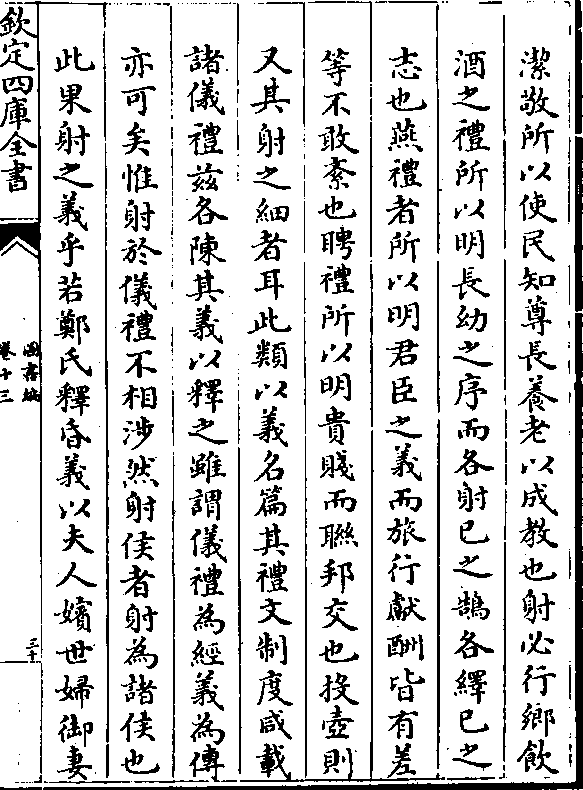 潔敬所以使民知尊長養老以成教也射必行鄉飲
酒之禮所以明長幼之序而各射已之鵠各繹已之
志也燕禮者所以明君臣之義而旅行獻酬皆有差
等不敢紊也聘禮所以明貴賤而聯邦交也投壺則
又其射之細者耳此類以義名篇其禮文制度咸載
諸儀禮兹各陳其義以釋之雖謂儀禮為經義為傳
亦可矣惟射於儀禮不相涉然射侯者射為諸侯也
此果射之義乎若鄭氏釋昏義以夫人嬪世婦御妻
欽定四庫全書
圖書編
卷十三
三十